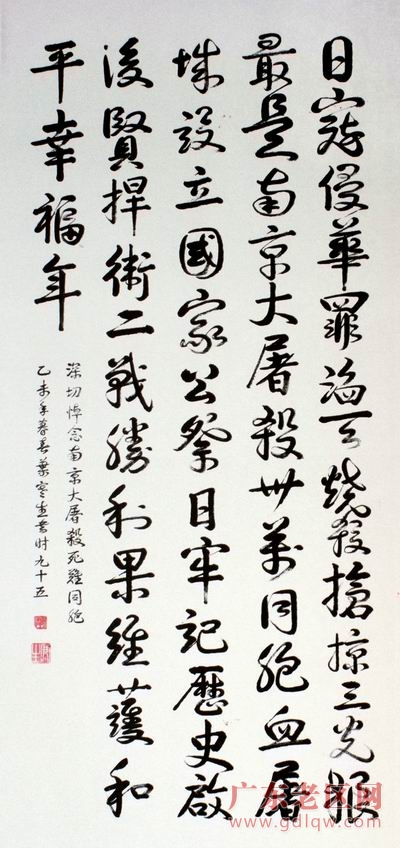 日寇侵華罪滔天燒殺搶掠三光
最是南京大屠殺卅萬同胞血屠
城設立國家公祭日牢記歷史啟
後賢捍衛二戰勝利果維護和
平幸福年
深切悼念南京大屠殺死難同胞
乙未年暮春葉寒生書時九十五
广东老区网
www.gdlqw.com